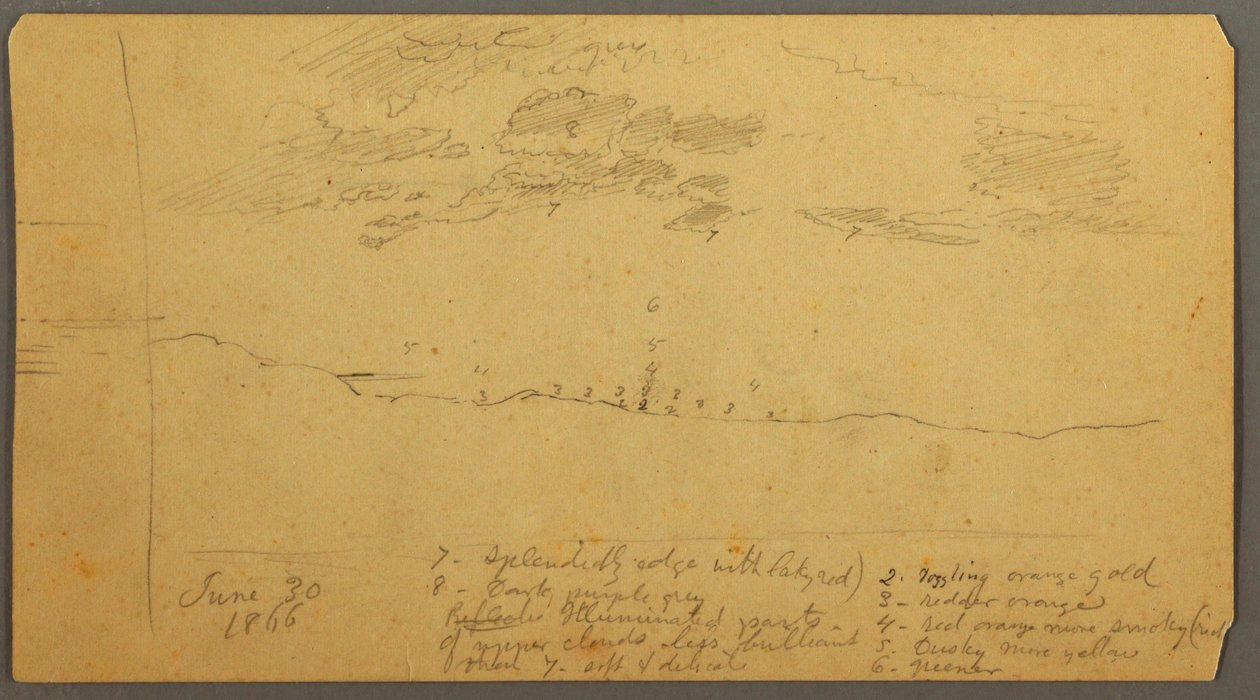 grey
8
7
7
7
6
5 5
4 4 4
3 3 3 3 3 3 3 3
2 2 2
June 30
1866
7 - Splendidly edge with laky red)
8 - Dark purple grey
Illuminated parts
of upper clouds less brilliant
than 7 - soft & delicate
2. orange gold
3 - redder orange
4 - red orange more smoky (red
5. Dusky more yellow
6 - greener